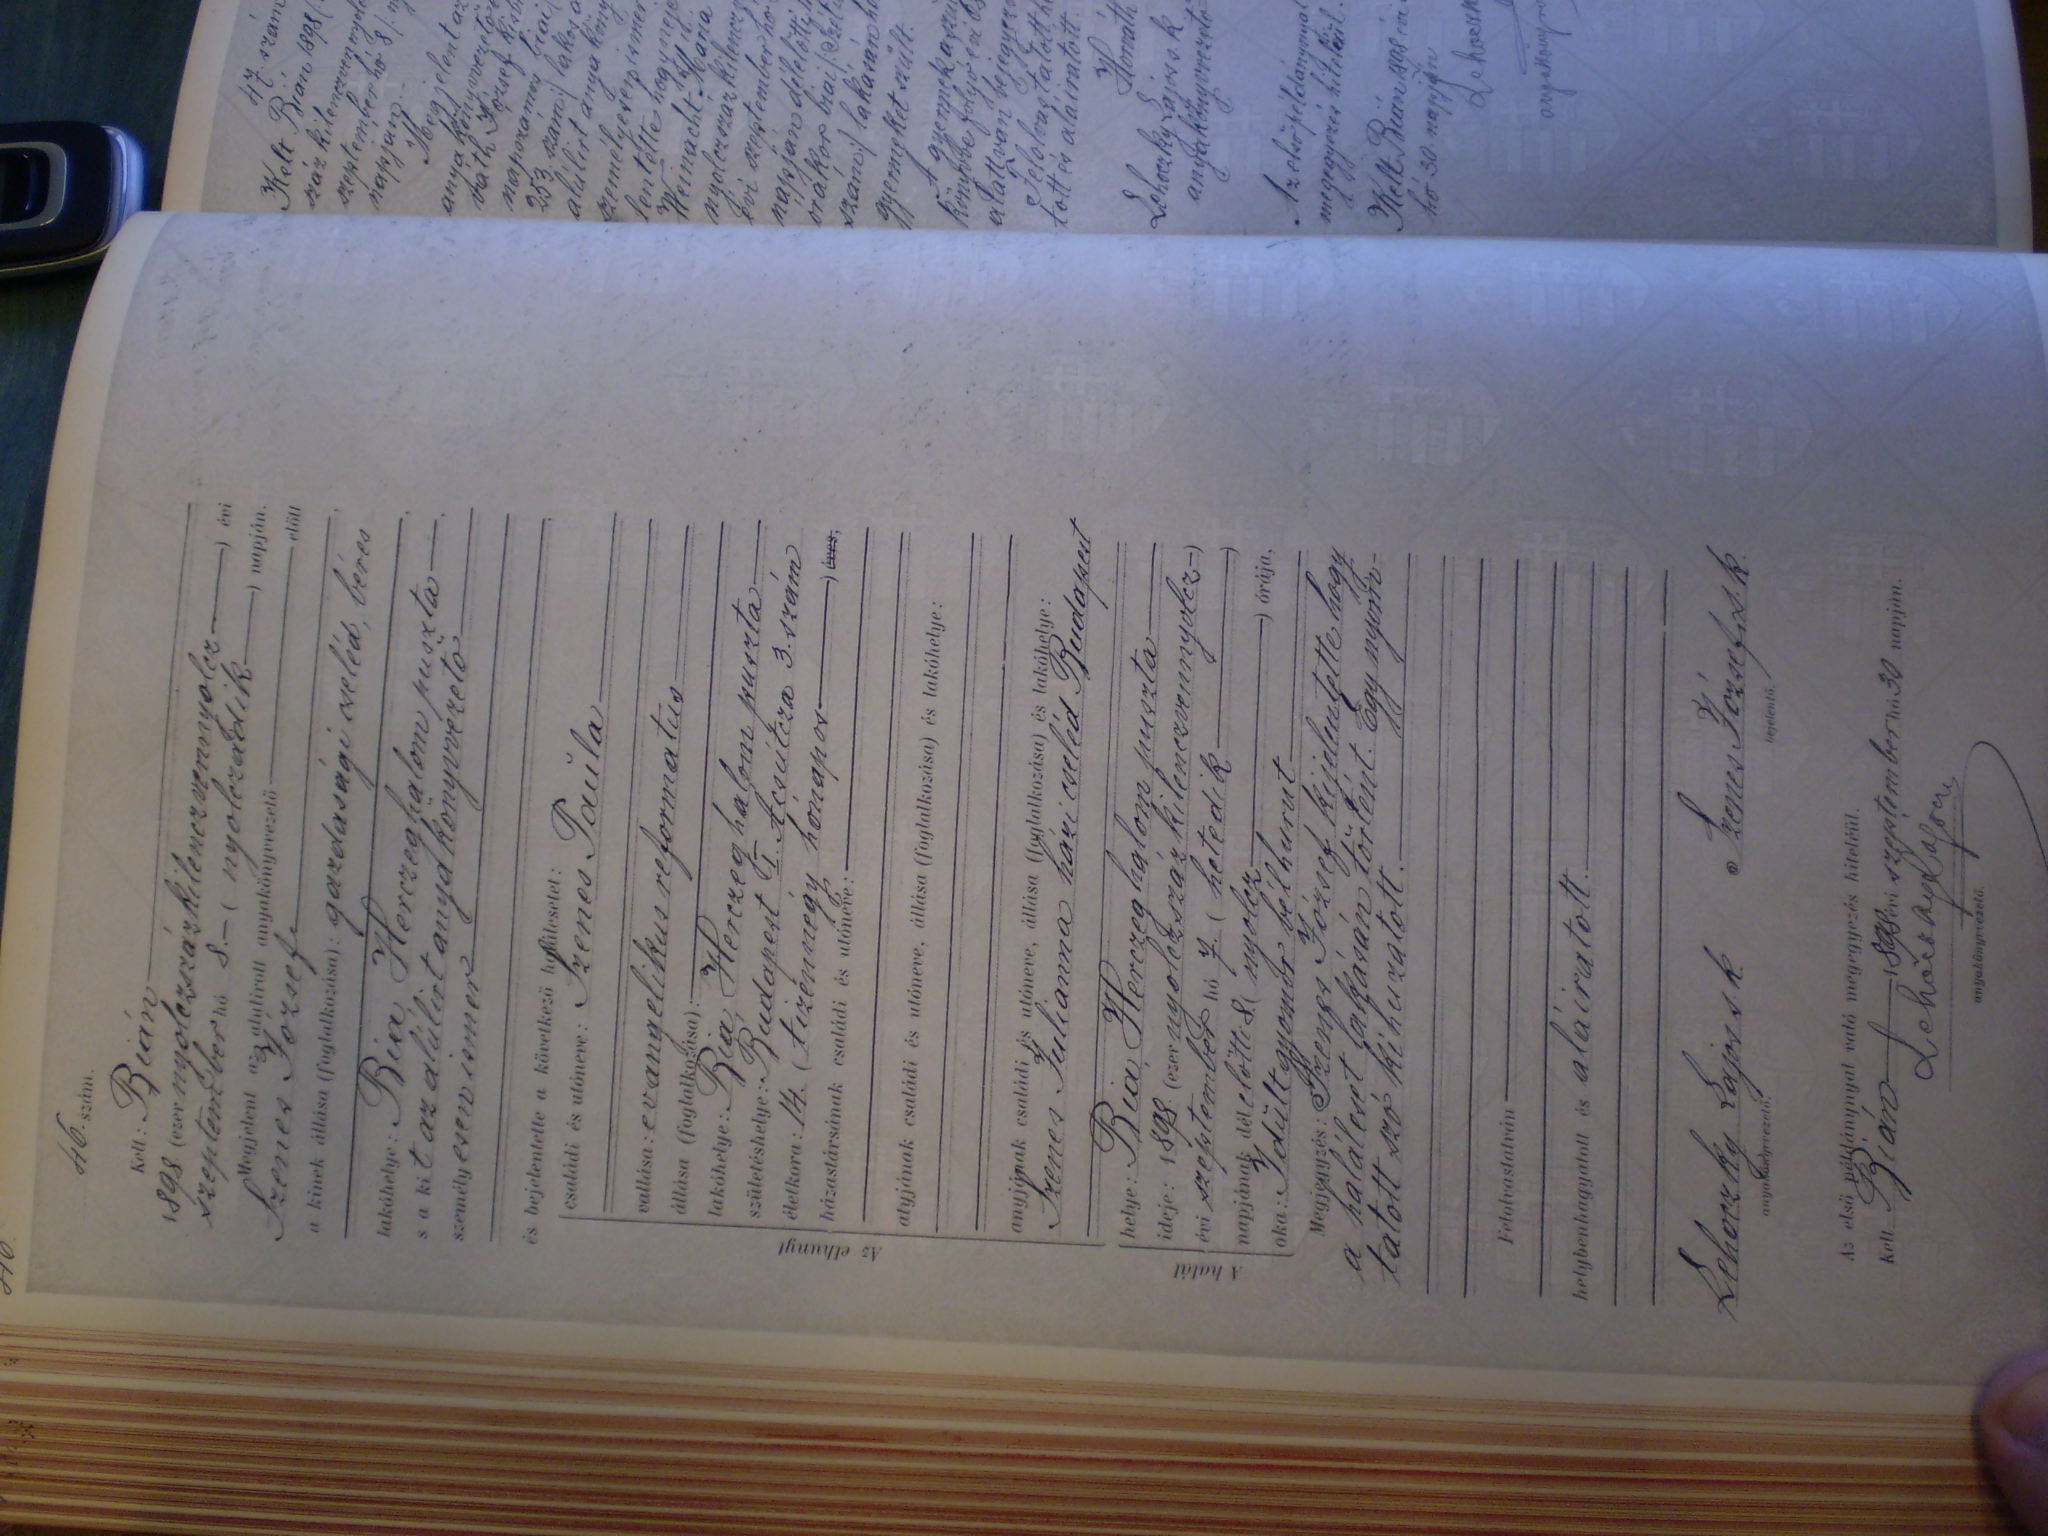 46. szám.
Kelt: Bián
1898. (ezer nyolczszázkilenczvennyolcz) évi
szeptember hó 8. (nyolczadik) napján.
Megjelent az alulirott anyakönyvezető előtt
Szenes József
a kinek állása (foglalkozása): gazdasági cseléd, béres
lakóhelye: Bia Herczeghalom puszta
s a kit az alúlirt anyakönyvvezető
személyesen ismer
és bejelentette a következő halálesetet:
Az elhunyt
családi és utóneve: Szenes Paula
vallása: evangelikus reformatus
állása (foglalkozása):
lakóhelye: Bia, Herczeghalom puszta
születéshelye: Budapest Ácsútcza 3. szám
életkora: 14. (tizennégy hónapos) éves,
házastársának családi és utóneve:
atyjának családi és utóneve, állása (foglalkozása) és lakóhelye:
anyjának családi és utóneve, állása (foglalkozása) és lakóhelye:
Szenes Julianna házi cseléd Budapest
A halál
helye: Bia Herczeghalom puszta
ideje: 1898. (ezer nyolczszázkilenczvennyolcz)
évi szeptember hó 7. (hetedik)
napjának dél előtti 8. (nyolcz) órája,
oka: Idült gyomor bélhurut
Megjegyzés: Szenes József kijelentette hogy
a haláleset lakásán történt. Egy nyom-
tatott szó kihúzatott.
Felolvastatván
helybenhagyatott és aláiratott.
Lehoczky Lajos s. k.
anyakönyvvezető.
Szenes József s. k.
bejelentő.
Az első példánynyal való megegyezés hiteléül.
Kelt Bián 1898 évi szeptember hó 30 napján.
Lehoczky Lajos
anyakönyvvezető.
47 szám
Kelt Bián 1898
száz kilenczven
szeptember hó 8
napján.
Megjelent az
anyakönyvvezető
váth József
napszámos biai
253 szám lakos
alúlirt anyaköny
személyesen ismer
lentette hogy neje
Weinacht Mária
nyolczszáz kilencz
évi szeptember hó
napján délelőtti
órakor biai
szám lakásán
gyermeket szült.
A gyermek
könyvbe folyó évi
alatt van bejegyez
Felolvastatott
tott és aláiratott
Horváth
Lehoczky Lajos s. k
anyakönyvvezető
Az első példánynyal
megegyezés hiteléül.
Kelt Bián 1898 évi
hó 30 napján
Lehoczky